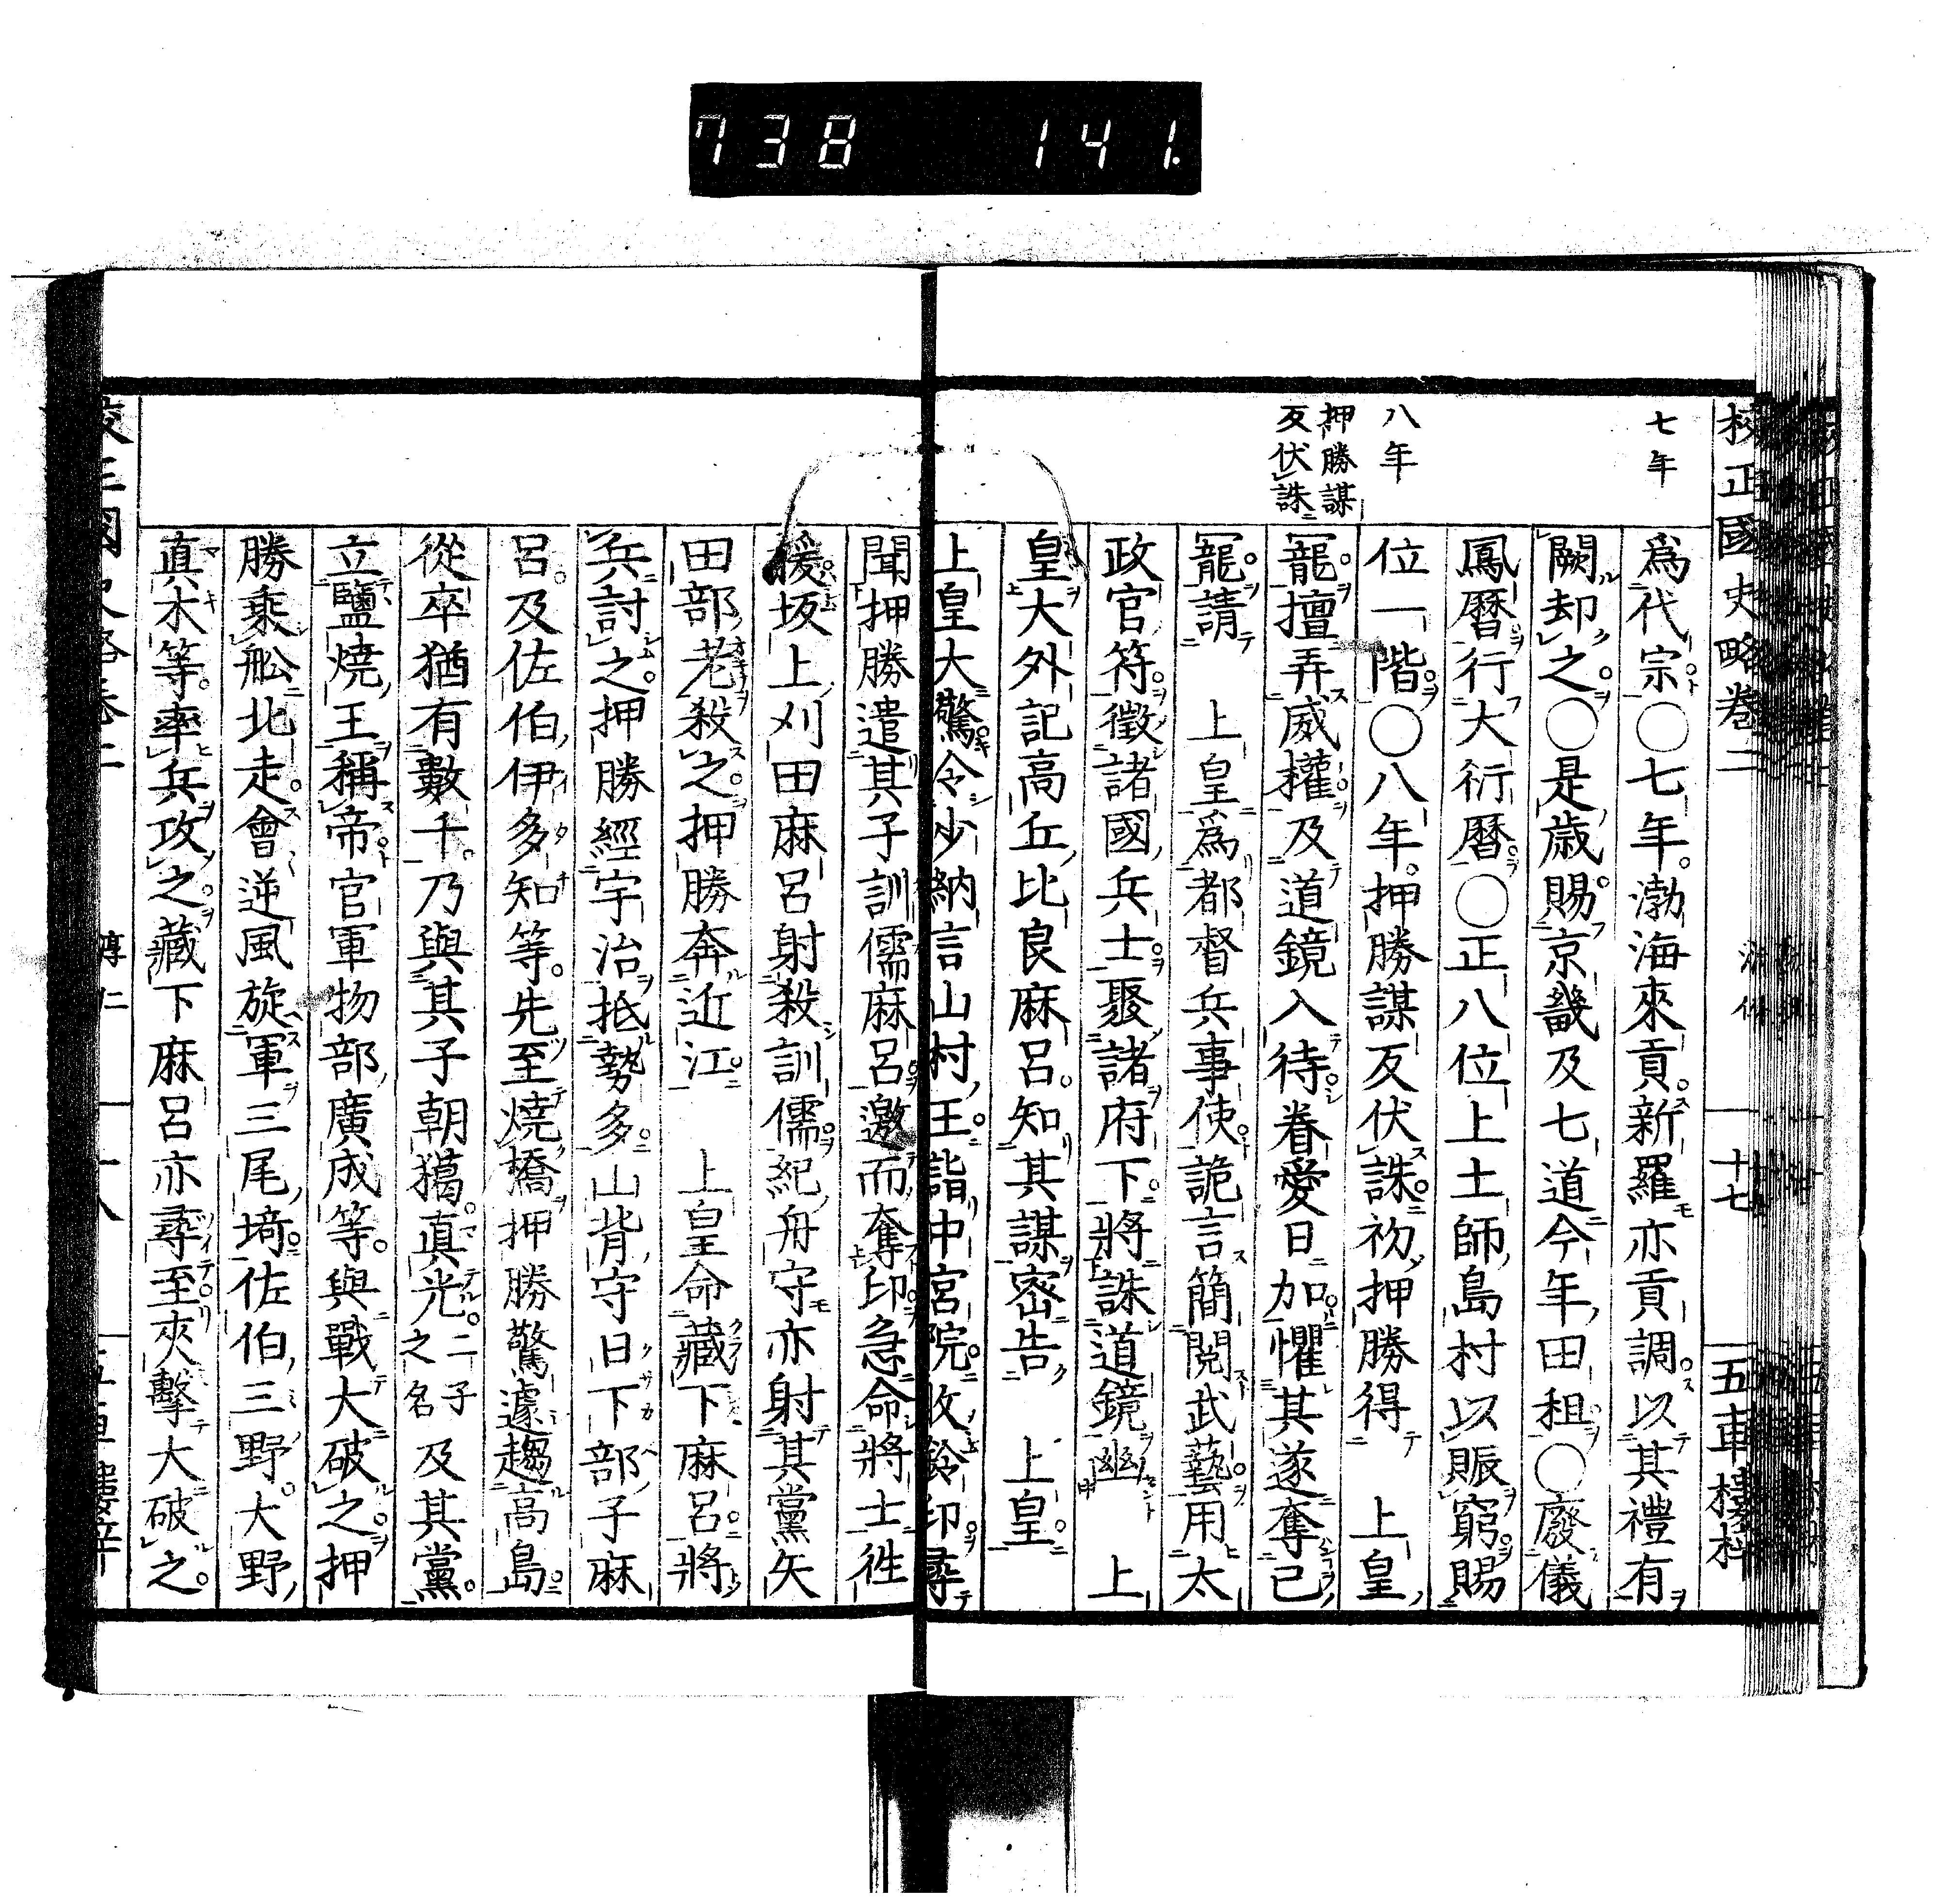 738 141.
校正國史略卷二
十七
五車樓梓
七年
八年
押勝謀
反伏誅
爲代宗○七年渤海來貢新羅亦貢調以其禮有
闕却之○是歲賜京畿及七道今年田租○廢儀
鳳曆行大衍曆○正八位上土師島村以賑窮賜
位一階○八年押勝謀反伏誅初押勝得 上皇
寵擅弄威權及道鏡入待眷愛日加懼其遂奪己
寵請 上皇爲都督兵事使詭言簡閱武藝用太
政官符徵諸國兵士聚諸府下將誅道鏡幽 上
皇大外記高丘比良麻呂知其謀密告 上皇
上皇大驚令少納言山村王詣中宮院收鈴印尋
聞押勝遣其子訓儒麻呂邀而奪印急命將士往
援坂上刈田麻呂射殺訓儒紀舟守亦射其黨矢
田部老殺之押勝奔近江 上皇命藏下麻呂將
兵討之押勝經宇治抵勢多山背守日下部子麻
呂及佐伯伊多知等先至燒橋押勝驚遽趨高島
從卒猶有數千乃與其子朝獦真光二子之名及其黨
立鹽燒王稱帝官軍物部廣成等與戰大破之押
勝乘舩北走會逆風旋軍三尾埼佐伯三野大野
真木等率兵攻之藏下麻呂亦尋至夾擊大破之
淳仁